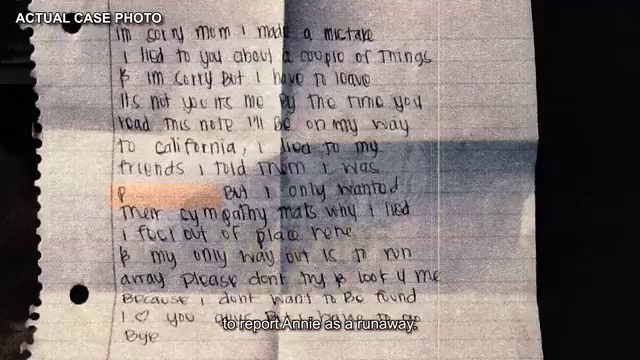 ACTUAL CASE PHOTO
Im sorry mom I made a mistake
I lied to you about a couple of things
& im sorry But I have to leave
its not you its me By the time you
read this note I'll Be on my way
to california, I lied to my
friends I told them I was
P But I only wanted
Their cympathy thats why I lied
I feel out of place here
& my only way out is to run
array please dont try & look 4 me
Because I dont want to Be found
I ♡ you guys But I have to go
Bye
to report Annie as a runaway.